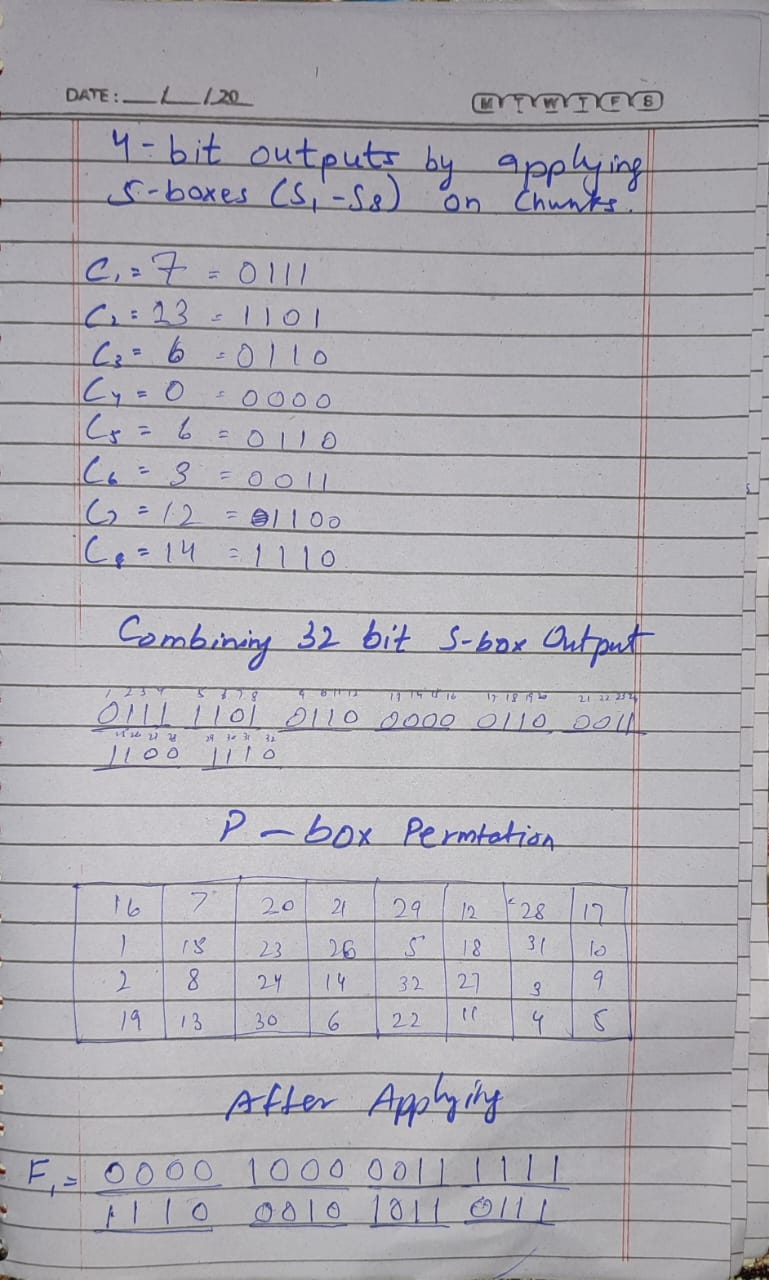 DATE: __/__/20__ M T W T F S
4-bit outputs by applying
S-boxes (S1-S8) on Chunks.
C1 = 7 = 0111
C2 = 13 = 1101
C3 = 6 = 0110
C4 = 0 = 0000
C5 = 6 = 0110
C6 = 3 = 0011
C7 = 12 = 1100
C8 = 14 = 1110
Combining 32 bit S-box Output
1 2 3 4 5 6 7 8 9 10 11 12 13 14 15 16 17 18 19 20 21 22 23 24
0111 1101 0110 0000 0110 0011
25 26 27 28 29 30 31 32
1100 1110
P-box Permtation
16 7 20 21 29 12 28 17
1 15 23 26 5 18 31 10
2 8 24 14 32 27 3 9
19 13 30 6 22 11 4 5
After Applying
F1 = 0000 1000 0011 1111
1110 0010 1011 0111